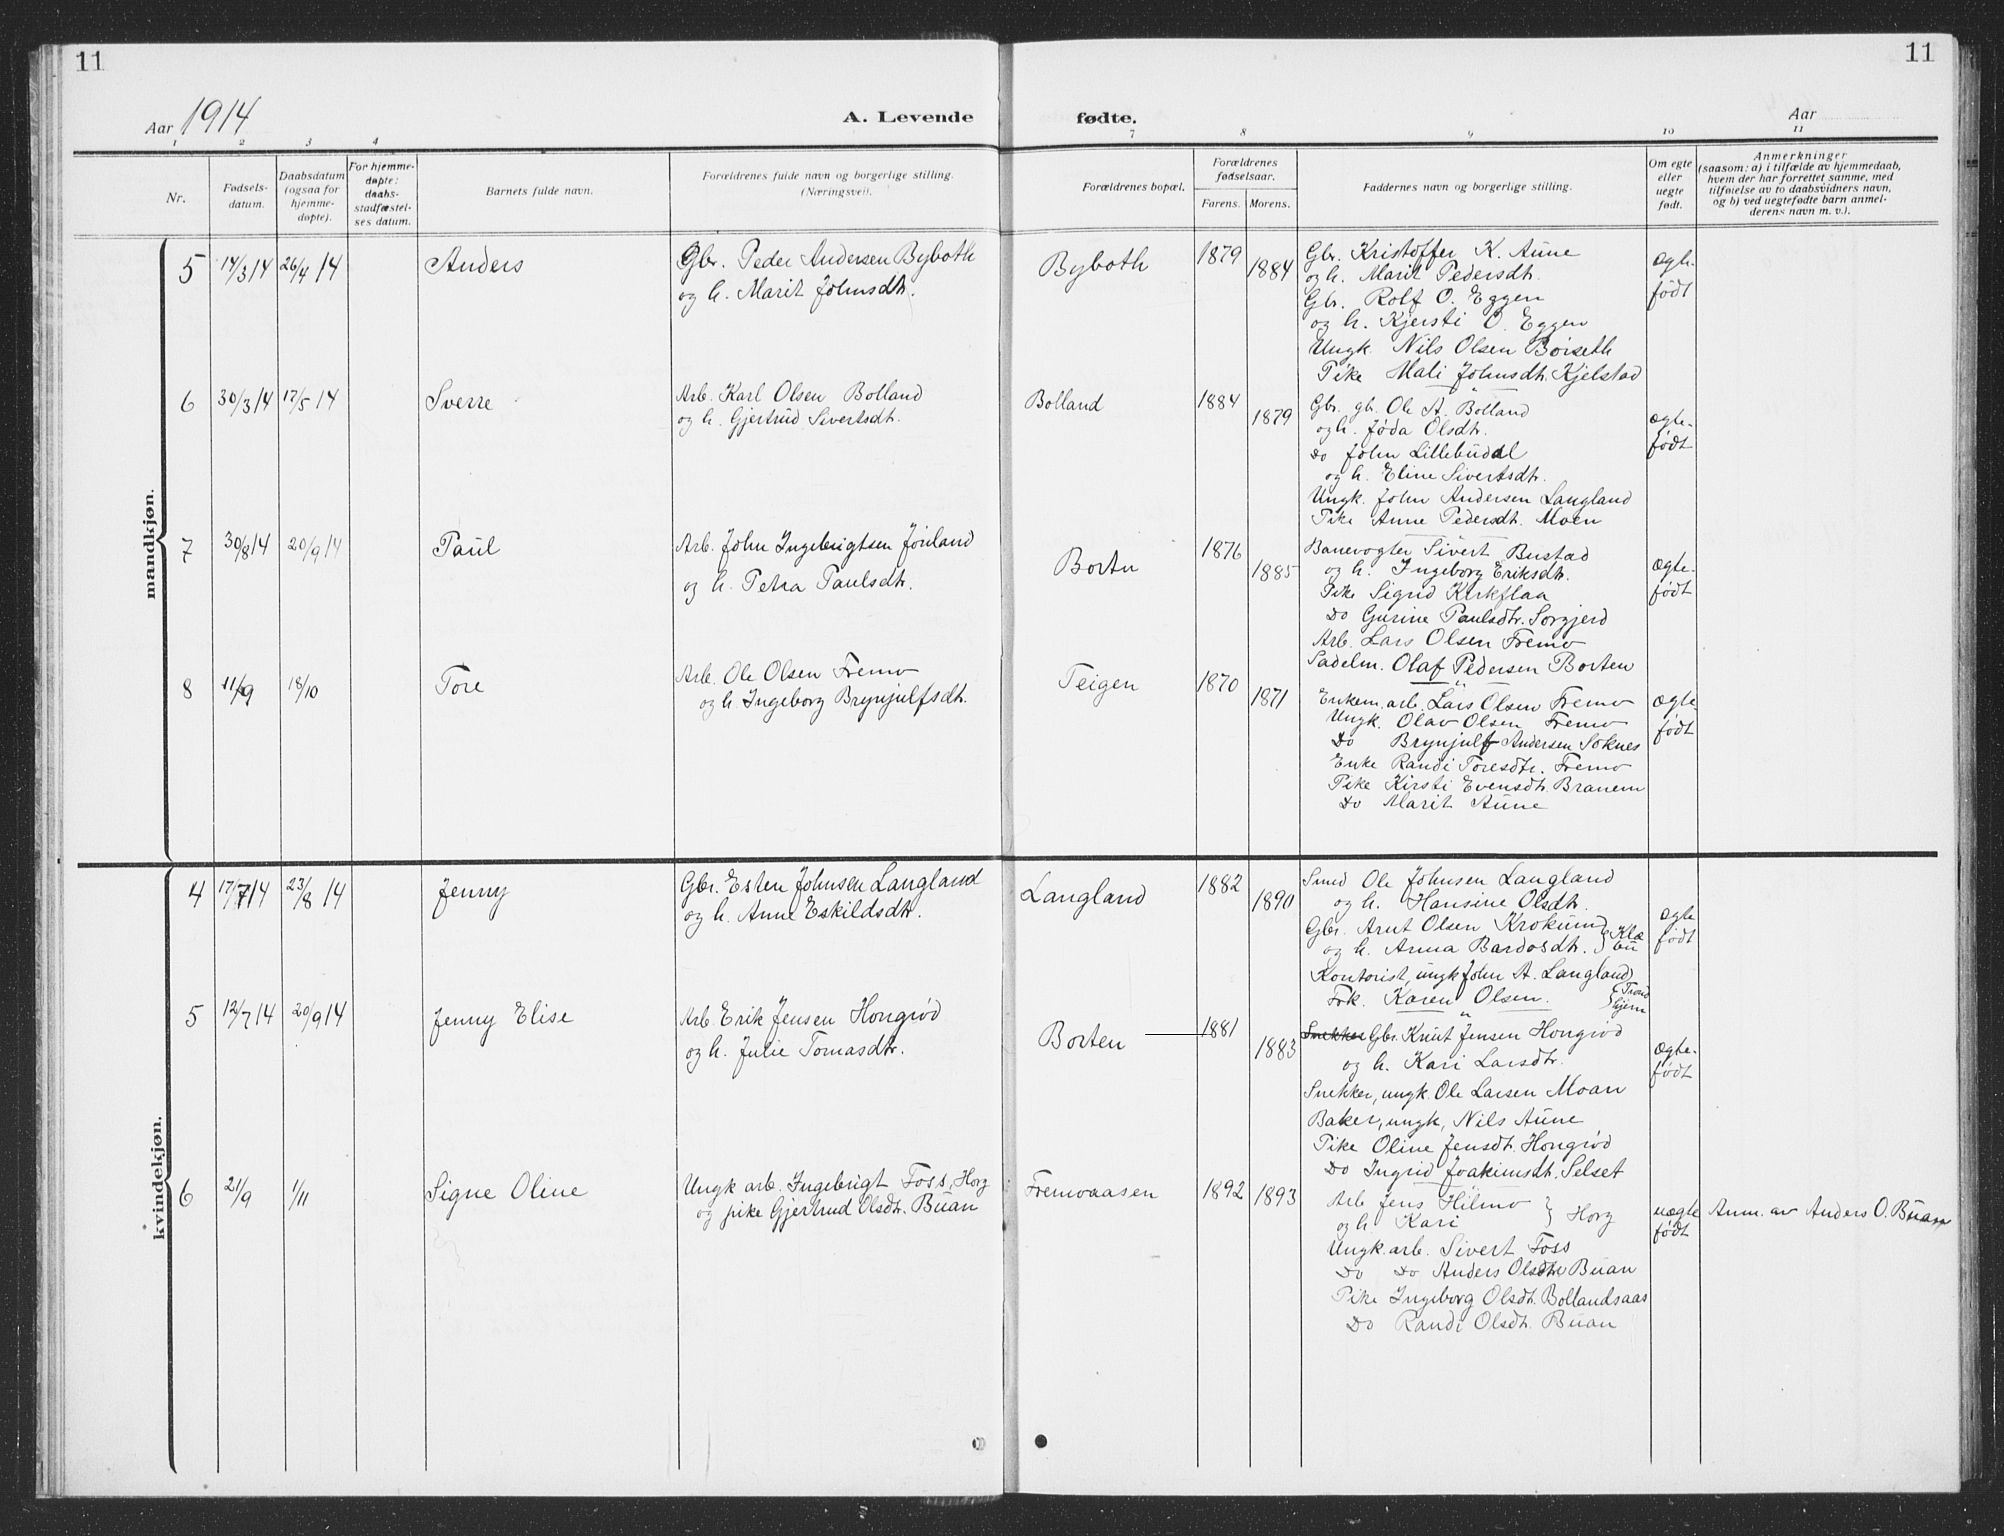 11
11
Aar 1914
A. Levende
fødte.
Aar
1 2 3 4 7 8 9 10 11
Nr.
Fødsels-
datum.
Daabsdatum
(ogsaa for
hjemme-
døpte).
For hjemme-
døpte:
daabs-
stadfæstel-
ses datum.
Barnets fulde navn.
Forældrenes fulde navn og borgerlige stilling.
(Næringsvei).
Forældrenes bopæl.
Forældrenes
fødselsaar.
Farens. Morens.
Faddernes navn og borgerlige stilling.
Om egte
eller
uegte
født.
Anmerkninger
(saasom: a) i tilfælde av hjemmedaab,
hvem der har forrettet samme, med
tilføielse av to daabsvidners navn,
og b) ved uegtefødte barn anmel-
derens navn m. v.).
mandkjøn.
5 14/3 14 26/4 14 Anders
Gbr. Peder Andersen Byboth
og h. Marit Johnsdtr.
Byboth 1879 1884
Gbr. Kristoffer K. Aune
og h. Marit Pedersdt.
Gbr. Rolf O. Eggen
og h. Kjersti O. Eggen
Ungk. Nils Olsen Børseth
Pike Mali Johnsdt. Kjelstad
ægte-
født
6 30/3 14 17/5 14 Sverre
Arb. Karl Olsen Bolland
og h. Gjertrud Sivertsdt.
Bolland 1884 1879
Gbr. gb. Ole A. Bolland
og h. Jøda Olsdt.
Do John Lillebudal
og h. Eline Sivertsdt.
Ungk. John Andersen Langland
Pike Anne Pedersdt. Moen
ægte-
født
7 30/8 14 20/9 14 Paul
Arb. John Ingebrigtsen Joriland
og h. Petra Paulsdtr.
Borten 1876 1885
Banevogter Sivert Bustad
og h. Ingeborg Eriksdtr.
Pike Sigrid Kirkflaa
Do Gurine Paulsdtr. Sorgjerd
Arb. Lars Olsen Fremo
Sadelm. Olaf Pedersen Borten
ægte-
født
8 11/9 18/10 Tore
Arb. Ole Olsen Fremo
og h Ingeborg Brynjulfsdt.
Teigen 1870 1871
Enkem. arb. Lars Olsen Fremo
Ungk. Olav Olsen Fremo
Do Brynjulf Andersen Soknes
Enke Randi Toresdtr. Fremo
Pike Kirsti Evensdt. Branem
Do Marit Aune
ægte-
født
kvindekjøn.
4 17/7 14 23/8 14 Jenny
Gbr. Esten Johnsen Langland
og h. Anne Eskildsdtr.
Langland 1882 1890
Smed Ole Johnsen Langland
og h. Hansine Olsdt.
Gbr. Arnt Olsen Krokum
og h. Anna Bardosdt. } Klæ
bu
Kontorist, ungk John A. Langland
Frk. Karen Olsen. } Trond
hjem
ægte
født
5 12/7 14 20/9 14 Jenny Elise
Arb Erik Jensen Hongrød
og h. Julie Tomasdtr.
Borten 1881 1883
Snekker Gbr. Knut Jensen Hongrød
og h. Kari Larsdtr.
Snekker, ungk. Ole Larsen Moan
Baker, ungk, Nils Aune
Pike Oline Jensdt. Hongrød
Do Ingrid Joakimsdt. Selset
ægte-
født
6 21/9 1/11 Signe Oline
Ungk arb. Ingebrigt Foss, Horg
og pike Gjertrud Olsdt. Buan
Fremoaasen 1892 1893
Arb Jens Hilmo
og h. Kari } Horg
Ungk. arb. Sivert Foss
Do Do Anders Olsdtr Buan
Pike Ingeborg Olsdt. Bollandsaas
Do Randi Olsdt. Buan
uægte
født
Anm. av Anders O. Buan